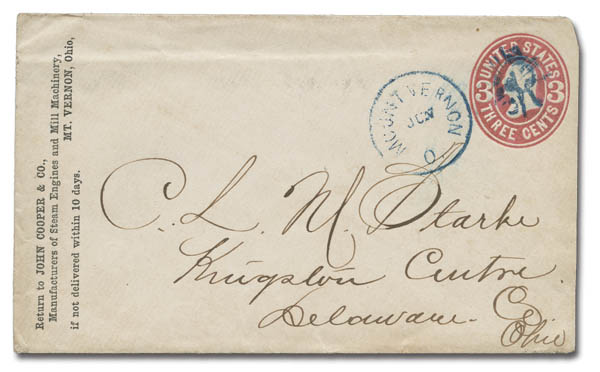 Return to JOHN COOPER & CO.,
Manufacturers of Steam Engines and Mill Machinery,
MT. VERNON, Ohio,
if not delivered within 10 days.
MOUNT VERNON
JUN
O
UNITED STATES
3 3
THREE CENTS
C. L. M. Starke
Kingston Centre.
Delaware. Co
Ohio